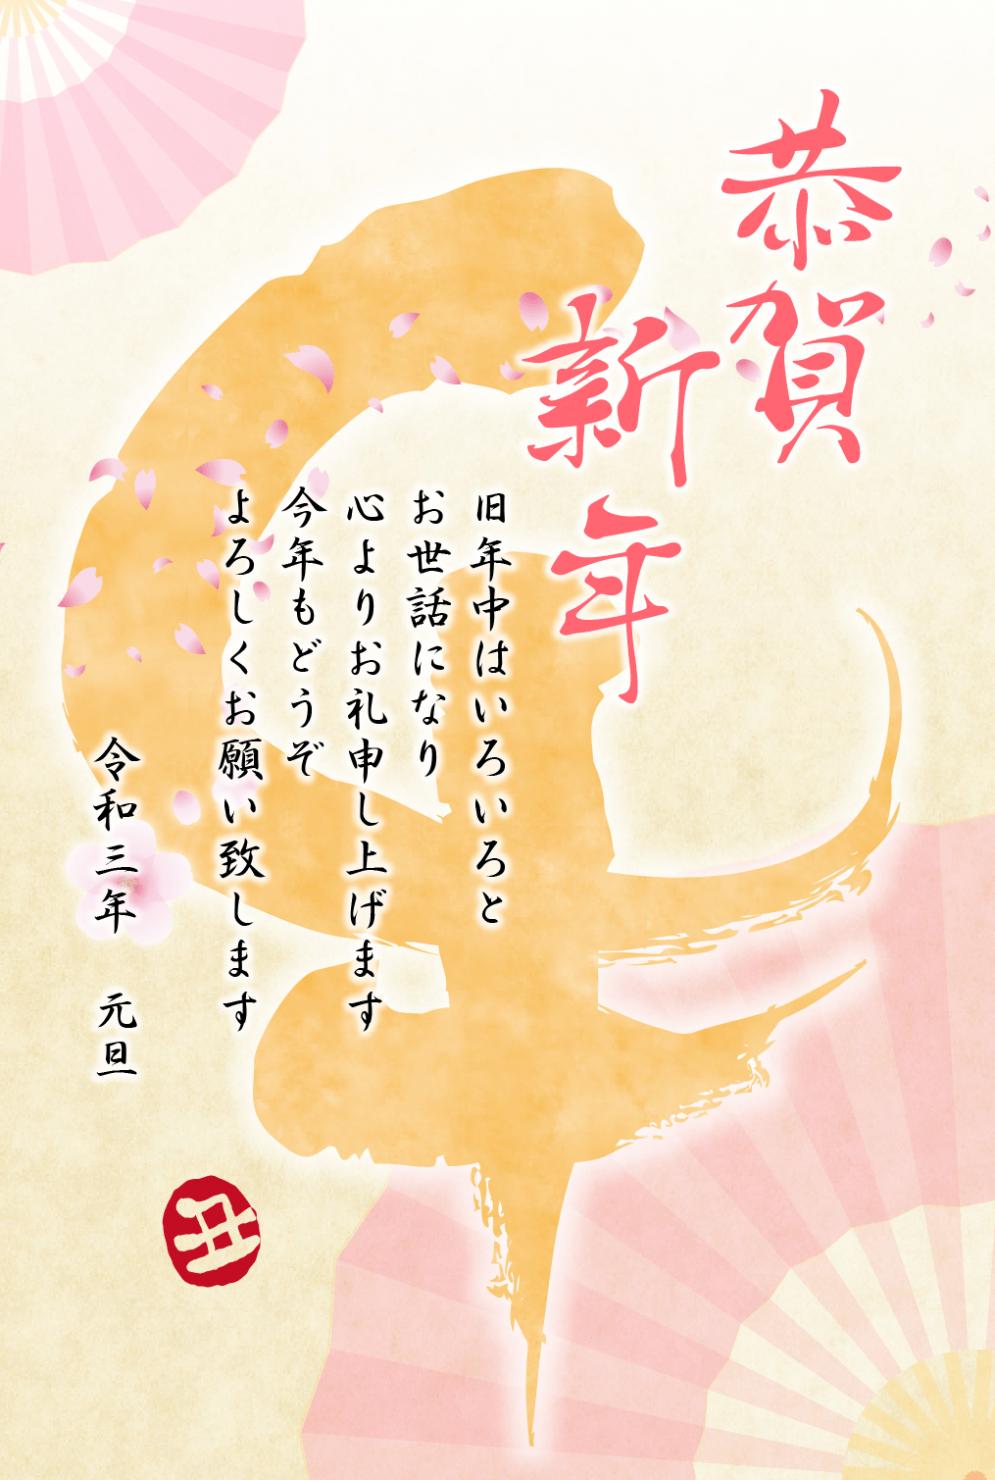 恭賀
新年
旧年中はいろいろと
お世話になり
心よりお礼申し上げます
今年もどうぞ
よろしくお願い致します
令和三年　元旦
丑
牛